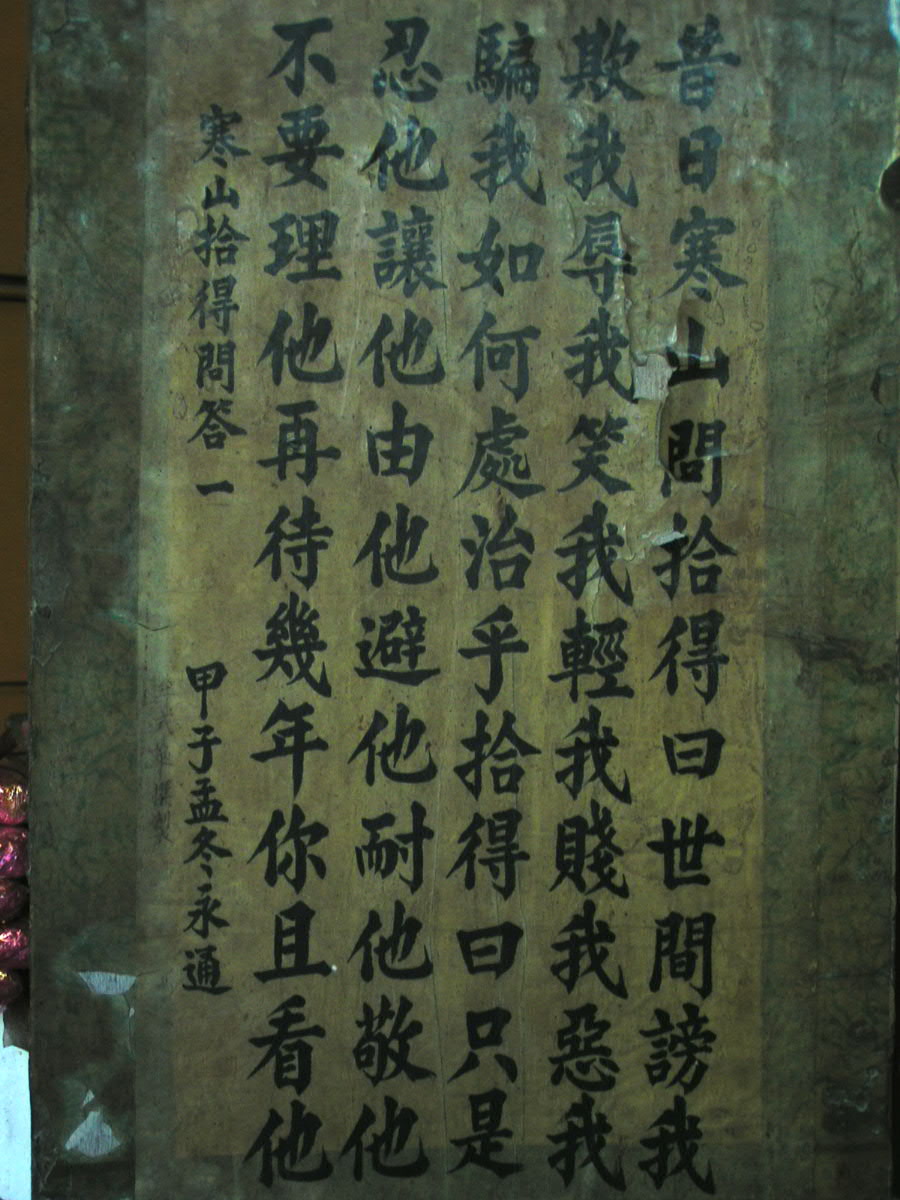 昔日寒山問拾得曰世間謗我
欺我辱我笑我輕我賤我惡我
騙我如何處治乎拾得曰只是
忍他讓他由他避他耐他敬他
不要理他再待幾年你且看他
寒山拾得問答一
甲子孟冬永通